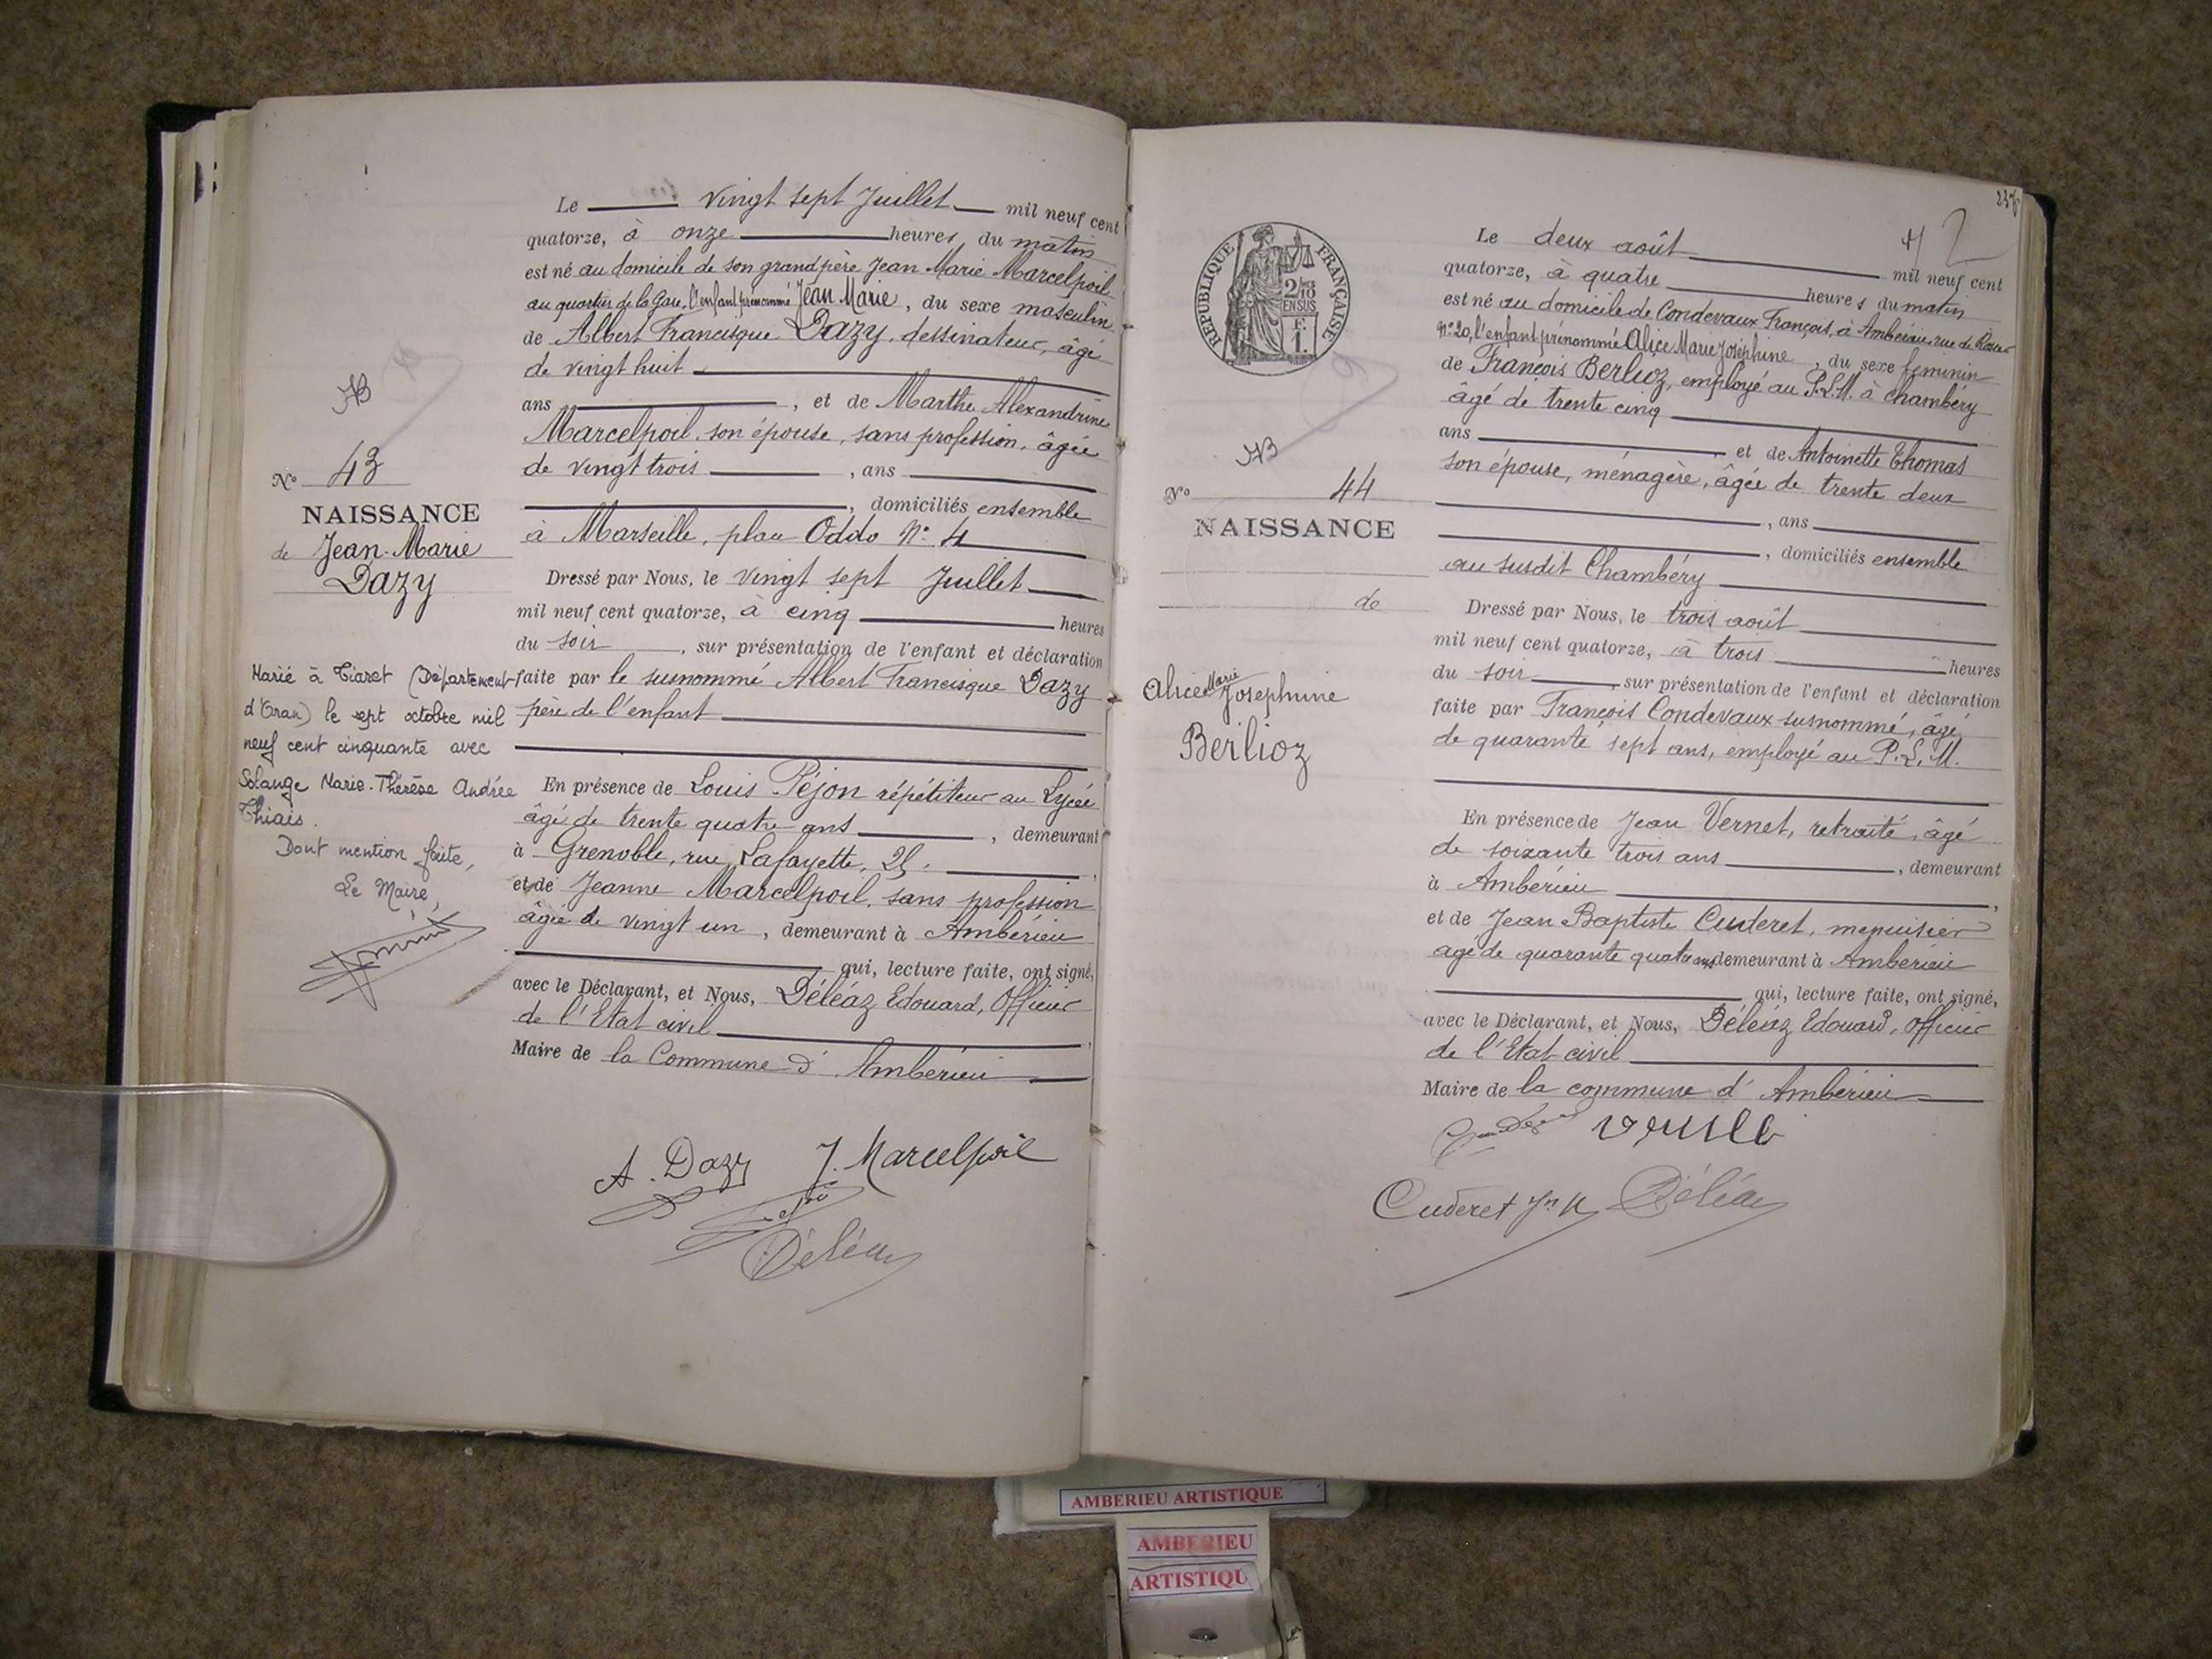 Le vingt sept Juillet mil neuf cent
quatorze, à onze heures du matin
est né au domicile de son grand père Jean Marie Marcelpoil
au quartier de la Gare, l'enfant prénommé Jean Marie, du sexe masculin
de Albert Francisque Dazy, dessinateur, âgé
de vingt huit
ans, et de Marthe Alexandrine
Marcelpoil, son épouse, sans profession, âgée
de vingt trois, ans
, domiciliés ensemble
à Marseille, place Oddo N° 4
Dressé par Nous, le vingt sept Juillet
mil neuf cent quatorze, à cinq heures
du soir, sur présentation de l'enfant et déclaration
faite par le susnommé Albert Francisque Dazy
père de l'enfant
En présence de Louis Péjon répétiteur au Lycée
âgé de trente quatre ans, demeurant
à Grenoble, rue Lafayette, 25,
et de Jeanne Marcelpoil, sans profession
âgée de vingt un, demeurant à Ambérieu
qui, lecture faite, ont signé,
avec le Déclarant, et Nous, Déléaz Edouard, Officier
de l'Etat civil,
Maire de la Commune d'Ambérieu
A. Dazy J. Marcelpoil
Déléaz
N° 43
NAISSANCE
de Jean-Marie
Dazy
Marié à Tiaret (Département
d'Oran) le sept octobre mil
neuf cent cinquante avec
Solange Marie-Thérèse Andrée
Thiais.
Dont mention faite,
Le Maire,
237
42
RÉPUBLIQUE FRANÇAISE
2/10
EN SUS
F.
1.
Le deux août mil neuf cent
quatorze, à quatre heures du matin
est né au domicile de Condevaux François, à Ambérieu, rue de
N° 20, l'enfant prénommé Alice Marie Joséphine, du sexe féminin
de François Berlioz, employé au P.L.M. à Chambéry
âgé de trente cinq
ans, et de Antoinette Thomas
son épouse, ménagère, âgée de trente deux
, ans
, domiciliés ensemble
au susdit Chambéry
Dressé par Nous, le trois août
mil neuf cent quatorze, à trois heures
du soir, sur présentation de l'enfant et déclaration
faite par François Condevaux susnommé, âgé
de quarante sept ans, employé au P.L.M.
En présence de Jean Vernet, retraité, âgé
de soixante trois ans, demeurant
à Ambérieu,
et de Jean Baptiste Cuderet, menuisier
agé de quarante quatre ans demeurant à Ambérieu
qui, lecture faite, ont signé,
avec le Déclarant, et Nous, Déléaz Edouard, officier
de l'Etat civil
Maire de la commune d'Ambérieu
Cuderet Déléaz
N° 44
NAISSANCE
de
Alice Marie Joséphine
Berlioz
AMBERIEU ARTISTIQUE
AMBERIEU
ARTISTIQU